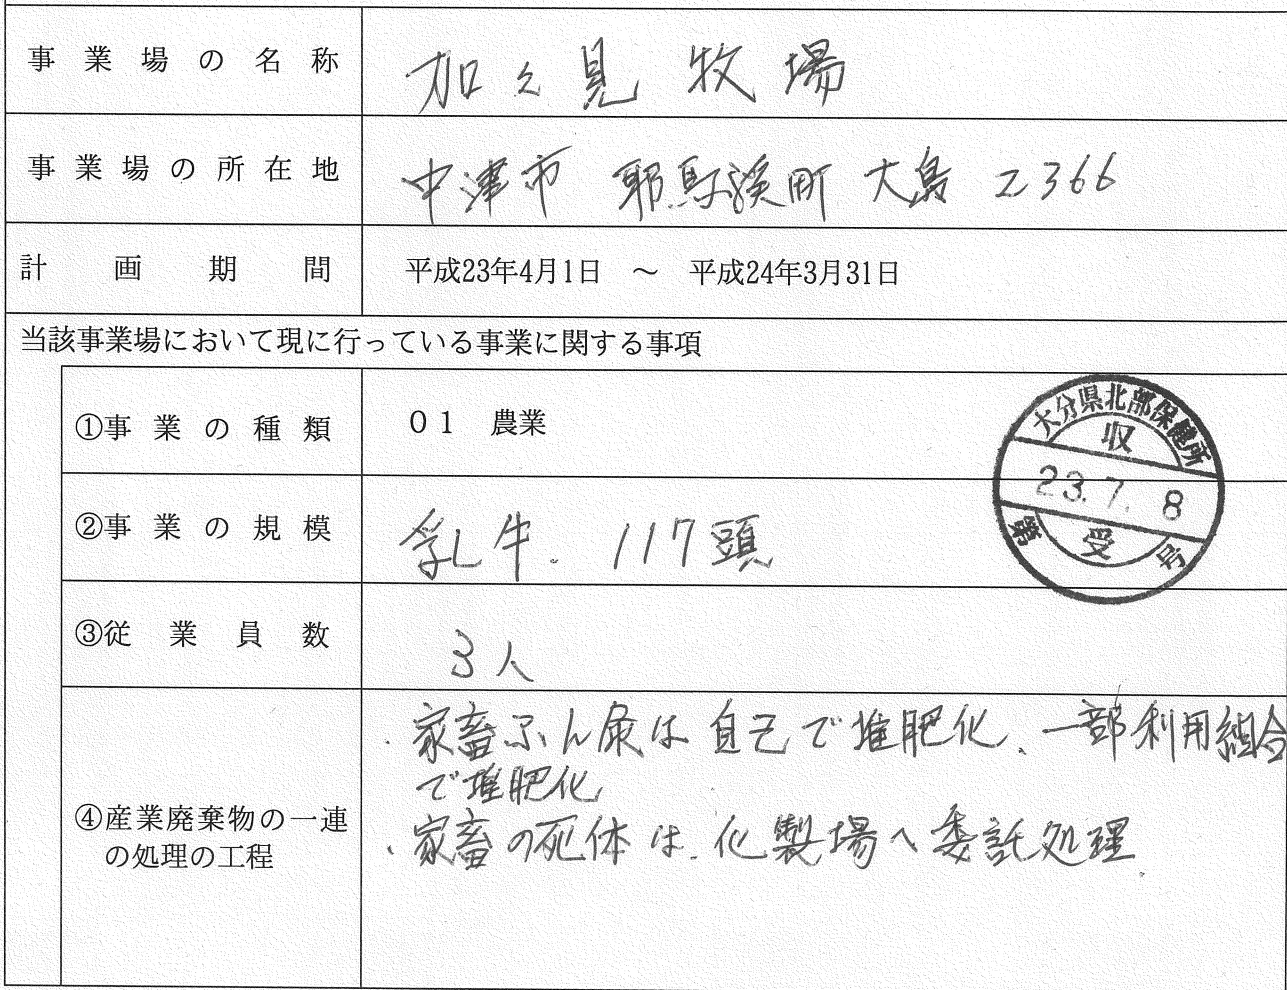 事業場の名称
加々見 牧場
事業場の所在地
中津市 耶馬溪町 大島 2366
計画期間
平成23年4月1日 ～ 平成24年3月31日
当該事業場において現に行っている事業に関する事項
①事業の種類
01 農業
②事業の規模
乳牛. 117頭
③従業員数
3人
④産業廃棄物の一連
の処理の工程
・家畜ふん尿は自己で堆肥化、一部利用組合
で堆肥化
・家畜の死体は.化製場へ委託処理.
大分県北部保健所
収
23.7.8
受
第 号